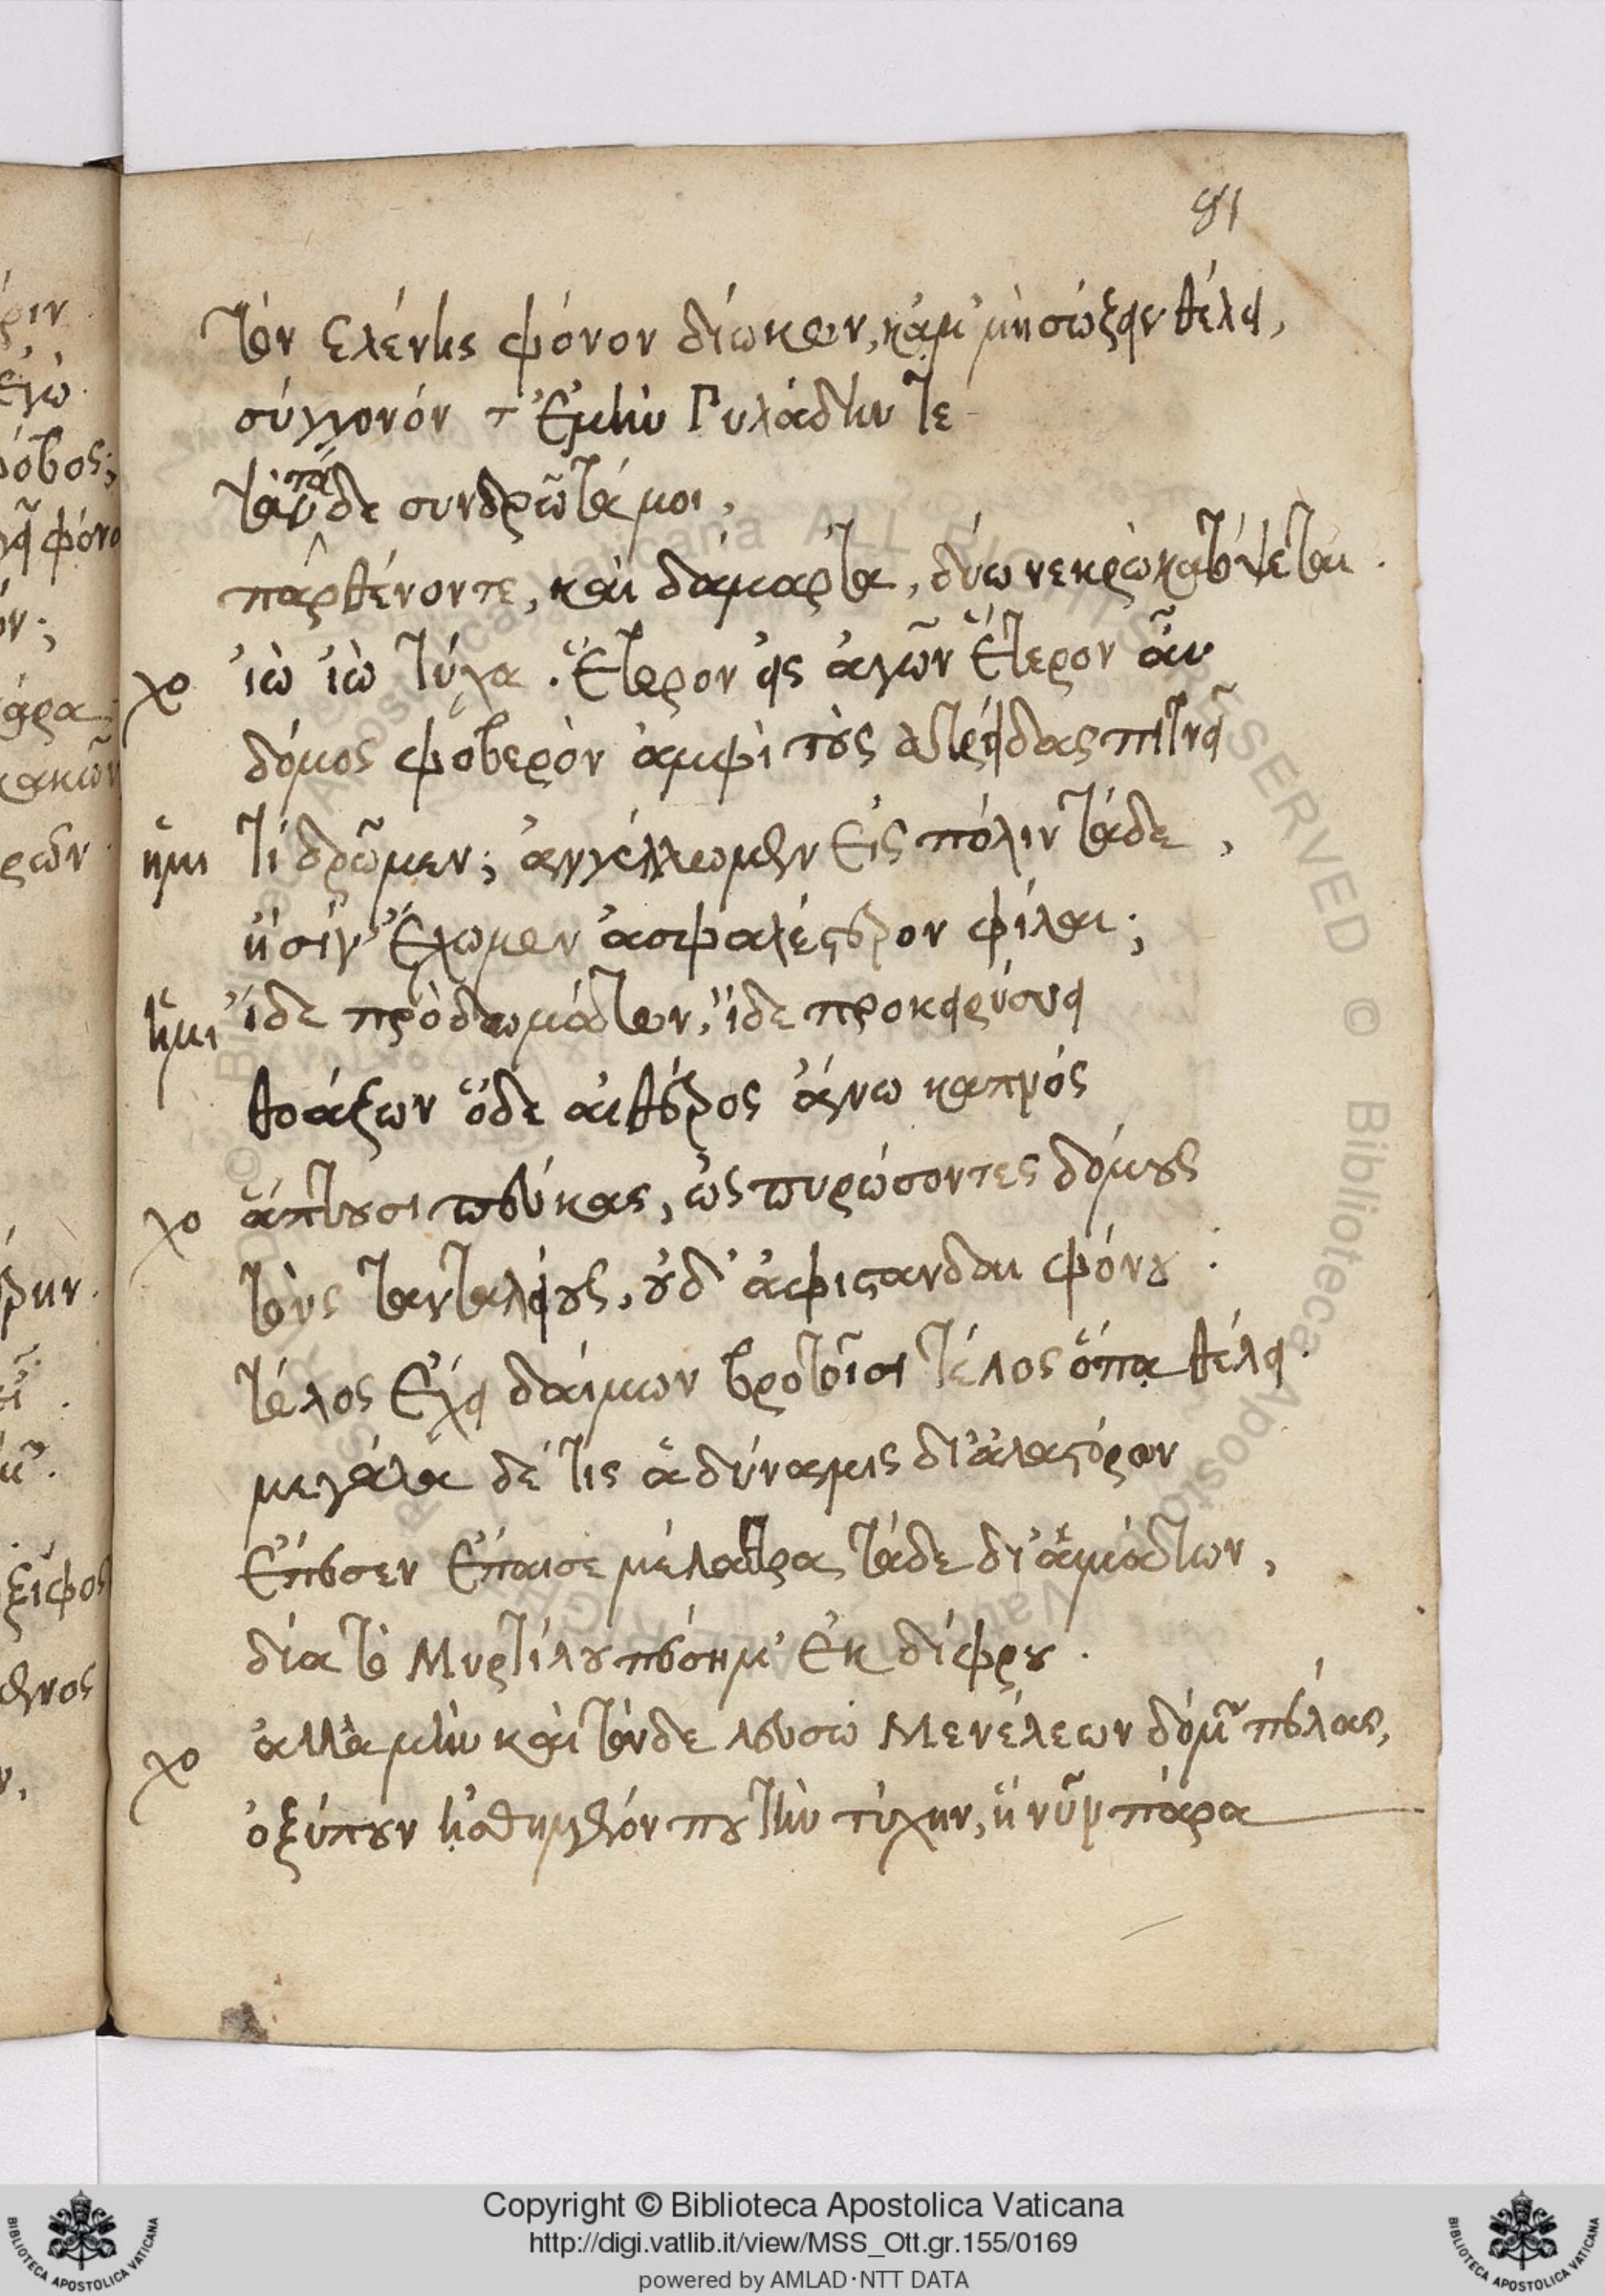 81
τὸν ἑλένης φόνον διώκων, κἀμ' μὴ σώζειν θέλει,
σύγγονόν τ' ἐμὴν Πυλάδην τε
τὸν τάδε συνδρῶντά μοι,
παρθένον τε, καὶ δάμαρτα, δύω νεκρὼ κατόψεται.
χο ἰὼ ἰὼ τύχα. ἕτερον εἰς ἀγῶν ἕτερον αὖ
δόμος φοβερὸν ἀμφὶ τοὺς ἀτρείδας πιτνεῖ
ἡμι τί δρῶμεν; ἀγγέλλωμεν εἰς πόλιν τάδε,
ἢ σίγ' ἔχωμεν ἀσφαλέστερον φίλαι;
ἡμι ἴδε πρὸ δωμάτων, ἴδε προκηρύσσει
θοάζων ὅδε αἰθέρος ἄνω καπνός
χο ἅπτουσι πεύκας, ὡς πυρώσοντες δόμους
τοὺς τανταλείους, οὐδ' ἀφίστανται φόνου.
τέλος ἔχει δαίμων βροτοῖσι τέλος ὅπα θέλει.
μεγάλα δέ τις ἁ δύναμις δι' ἀλαστόρων
ἔπεσεν ἔπαισε μέλαθρα τάδε δι' αἱμάτων,
διὰ τὸ Μυρτίλου πέσημ' ἐκ δίφρου.
χο ἀλλὰ μὴν καὶ τόνδε λεύσω Μενέλεων δόμων πέλας,
ὀξύπουν ᾐσθημένον που τὴν τύχην, ἣ νῦν πάρα
ἡμι
Copyright © Biblioteca Apostolica Vaticana
http://digi.vatlib.it/view/MSS_Ott.gr.155/0169
powered by AMLAD·NTT DATA
BIBLIOTECA APOSTOLICA VATICANA
BIBLIOTECA APOSTOLICA VATICANA